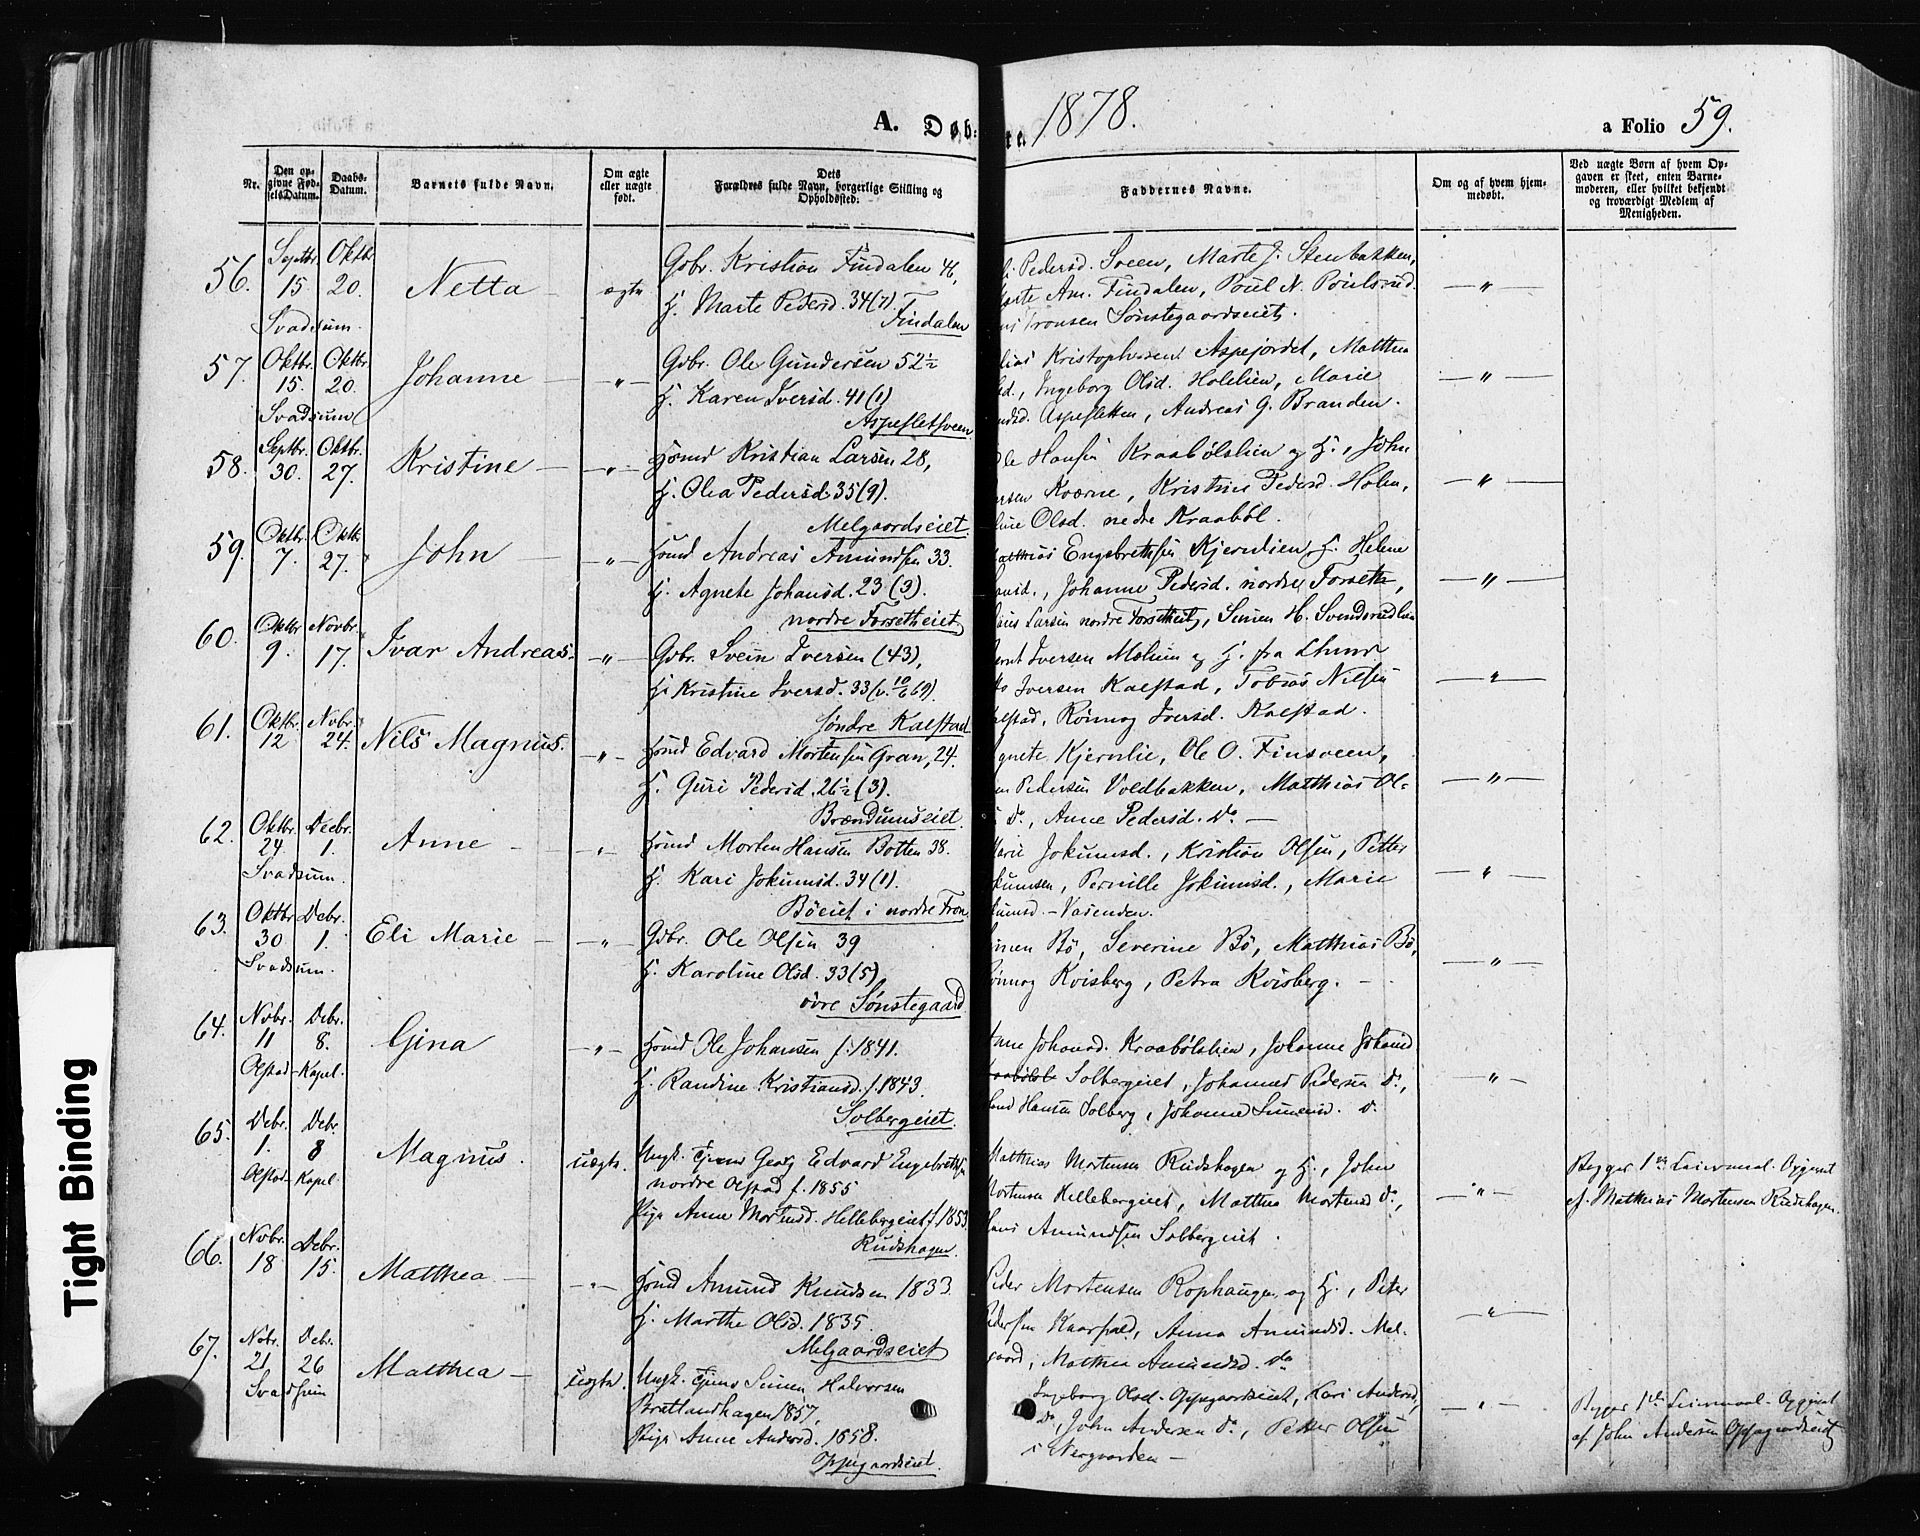 A. Døb:
te 1878.
a Folio 59.
Nr.
Den op-
givne Fød-
selsDatum.
Daabs-
Datum.
Barnets fulde Navn.
Om ægte
eller uægte
født.
Dets
Forældres fulde Navn, borgerlige Stilling og
Opholdssted.
Faddernes Navne.
Om og af hvem hjem-
medøbt.
Ved uægte Børn af hvem Op-
gaven er skeet, enten Barne-
moderen, eller hvilket bekjendt
og troværdigt Medlem af
Menigheden.
56. Septbr. 15 Oktbr. 20. Netta ægte
Svadsum.
Gbr. Kristian Findalen 46,
H. Marte Pedersd. 34(7).
Findalen
Pedersd. Sveen, Marte J. Stenbakken,
Am. Findalen, Poul N. Poulsrud
Tronsen Sønstegaardseiet.
— " —
57. Oktbr. 15. Oktbr. 20. Johanne — " —
Svadsum
Gbr. Ole Gundersen 52½
H. Karen Iversd. 41(1)
Aspesletsveen
Kristophersen Aspejordet, Matthea
Ingeborg Olsd. Holelien, Marie
Aspesletten, Andreas G. Branden.
— " —
58. Septbr. 30. Oktbr. 27. Kristine — " —
Hsmd Kristian Larsen 28,
H. Olea Pedersd 35(9).
Melgaardseiet
Hansen Kraabølslien og H., John
Kværne, Kristine Pedersd. Holen,
Olsd. nedre Kraabøl.
— " —
59. Oktbr. 7. Oktbr. 27. John — " —
Hsmd Andreas Amundsen 33.
H. Agnete Johansd. 23 (3).
nordre Forsetheiet
Engebretsen Kjernlien, H. Helene
Johanne Pedersd. nordre Forseth,
Larsen nordre Forsetheiet, Simen H. Svendsrudlien
— " —
60. Oktbr. 9. Novbr. 17. Ivar Andreas. — " —
Gbr. Svein Iversen (43),
H. Kristine Iversd. 33
søndre Kalstad
Iversen Moshuus og H. fra
Iversen Kalstad, Tobias Nilsen
Rønnog Iversd. Kalstad.
— " —
61. Oktbr. 12 Novbr. 24. Nils Magnus. — " —
Hsmd Edvard Mortensen Gran, 24.
H. Guri Pedersd. 26½ (3).
Brændumseiet.
Kjernlie, Ole O. Finsveen,
Pedersen Voldbakken, Matthias Ol-
Do, Anne Pedersd. Do —
— " —
62. Oktbr. 24 Decbr. 1. Anne — " —
Svadsum.
Hsmd Morten Hansen Botten 38.
H. Kari Jokumsd. 34(1).
Böeiet i nordre Fron
Jokumsd., Kristian Olsen, Petter
Pernille Jokumsd., Marie
— Vasenden.
— " —
63. Oktbr 30 Debr. 1. Eli Marie — " —
Svadsum.
Gbr. Ole Olsen 39
H. Karoline Olsd. 33(5)
øvre Sønstegaard
Bö, Severine Bö, Matthias Bö,
Kvisberg, Petra Kvisberg. —
— " —
64. Novbr. 11 Debr. 8. Gina — " —
Olstad-Kapel.
Hsmd Ole Johansen f. 1841.
H. Randine Kristiansd. f. 1843.
Solbergeiet.
Johansd. Kraabølslien, Johanne Johansd
Solbergeiet, Johannes Pedersen Do,
Hansen Solberg, Johanne Simensd. Do
— " —
65. Debr. 1. Debr. 8 Magnus. uægte.
Olstad-Kapel
Ungk. Tjener Georg Edvard Engebretsen
nordre Olstad f. 1855
Pige Anne Mortensd. Hellebergeiet f. 1853
Rudshagen.
Matthias Mortensen Rudshagen og H., John
Mortensen Hellebergeiet, Matthea Mortensd Do,
Hans Amundsen Solbergeiet.
— " —
Begges 1ste Leiermaal. Opgivet
af Mathias Mortensen Rudshagen.
66. Novbr. 18 Debr. 15. Matthea — " —
Hsmd Amund Knudsen 1833.
H. Marthe Olsd. 1835.
Melgaardseiet
Peder Mortensen Rophaugen og H., Peter
Pedersen Kaarstad, Anna Amundsd. Mel-
gaard, Mathea Amundsd. Do
— " —
67. Nobr. 21 Debr. 26 Matthea — uægte.
Svadsum
Ungk. Tjener Simen Halvorsen
Bratlandhagen 1857,
Pige Anne Andersd. 1858.
Oppegaardseiet.
Ingeborg Olsd. Oppegaardseiet, Kari Andersd,
Do, John Andersen Do, Petter Olsen
i Nergaarden —
— " —
Begges 1ste Leiermaal. Opgivet
af John Andersen Oppegaardseiet
Tight Binding